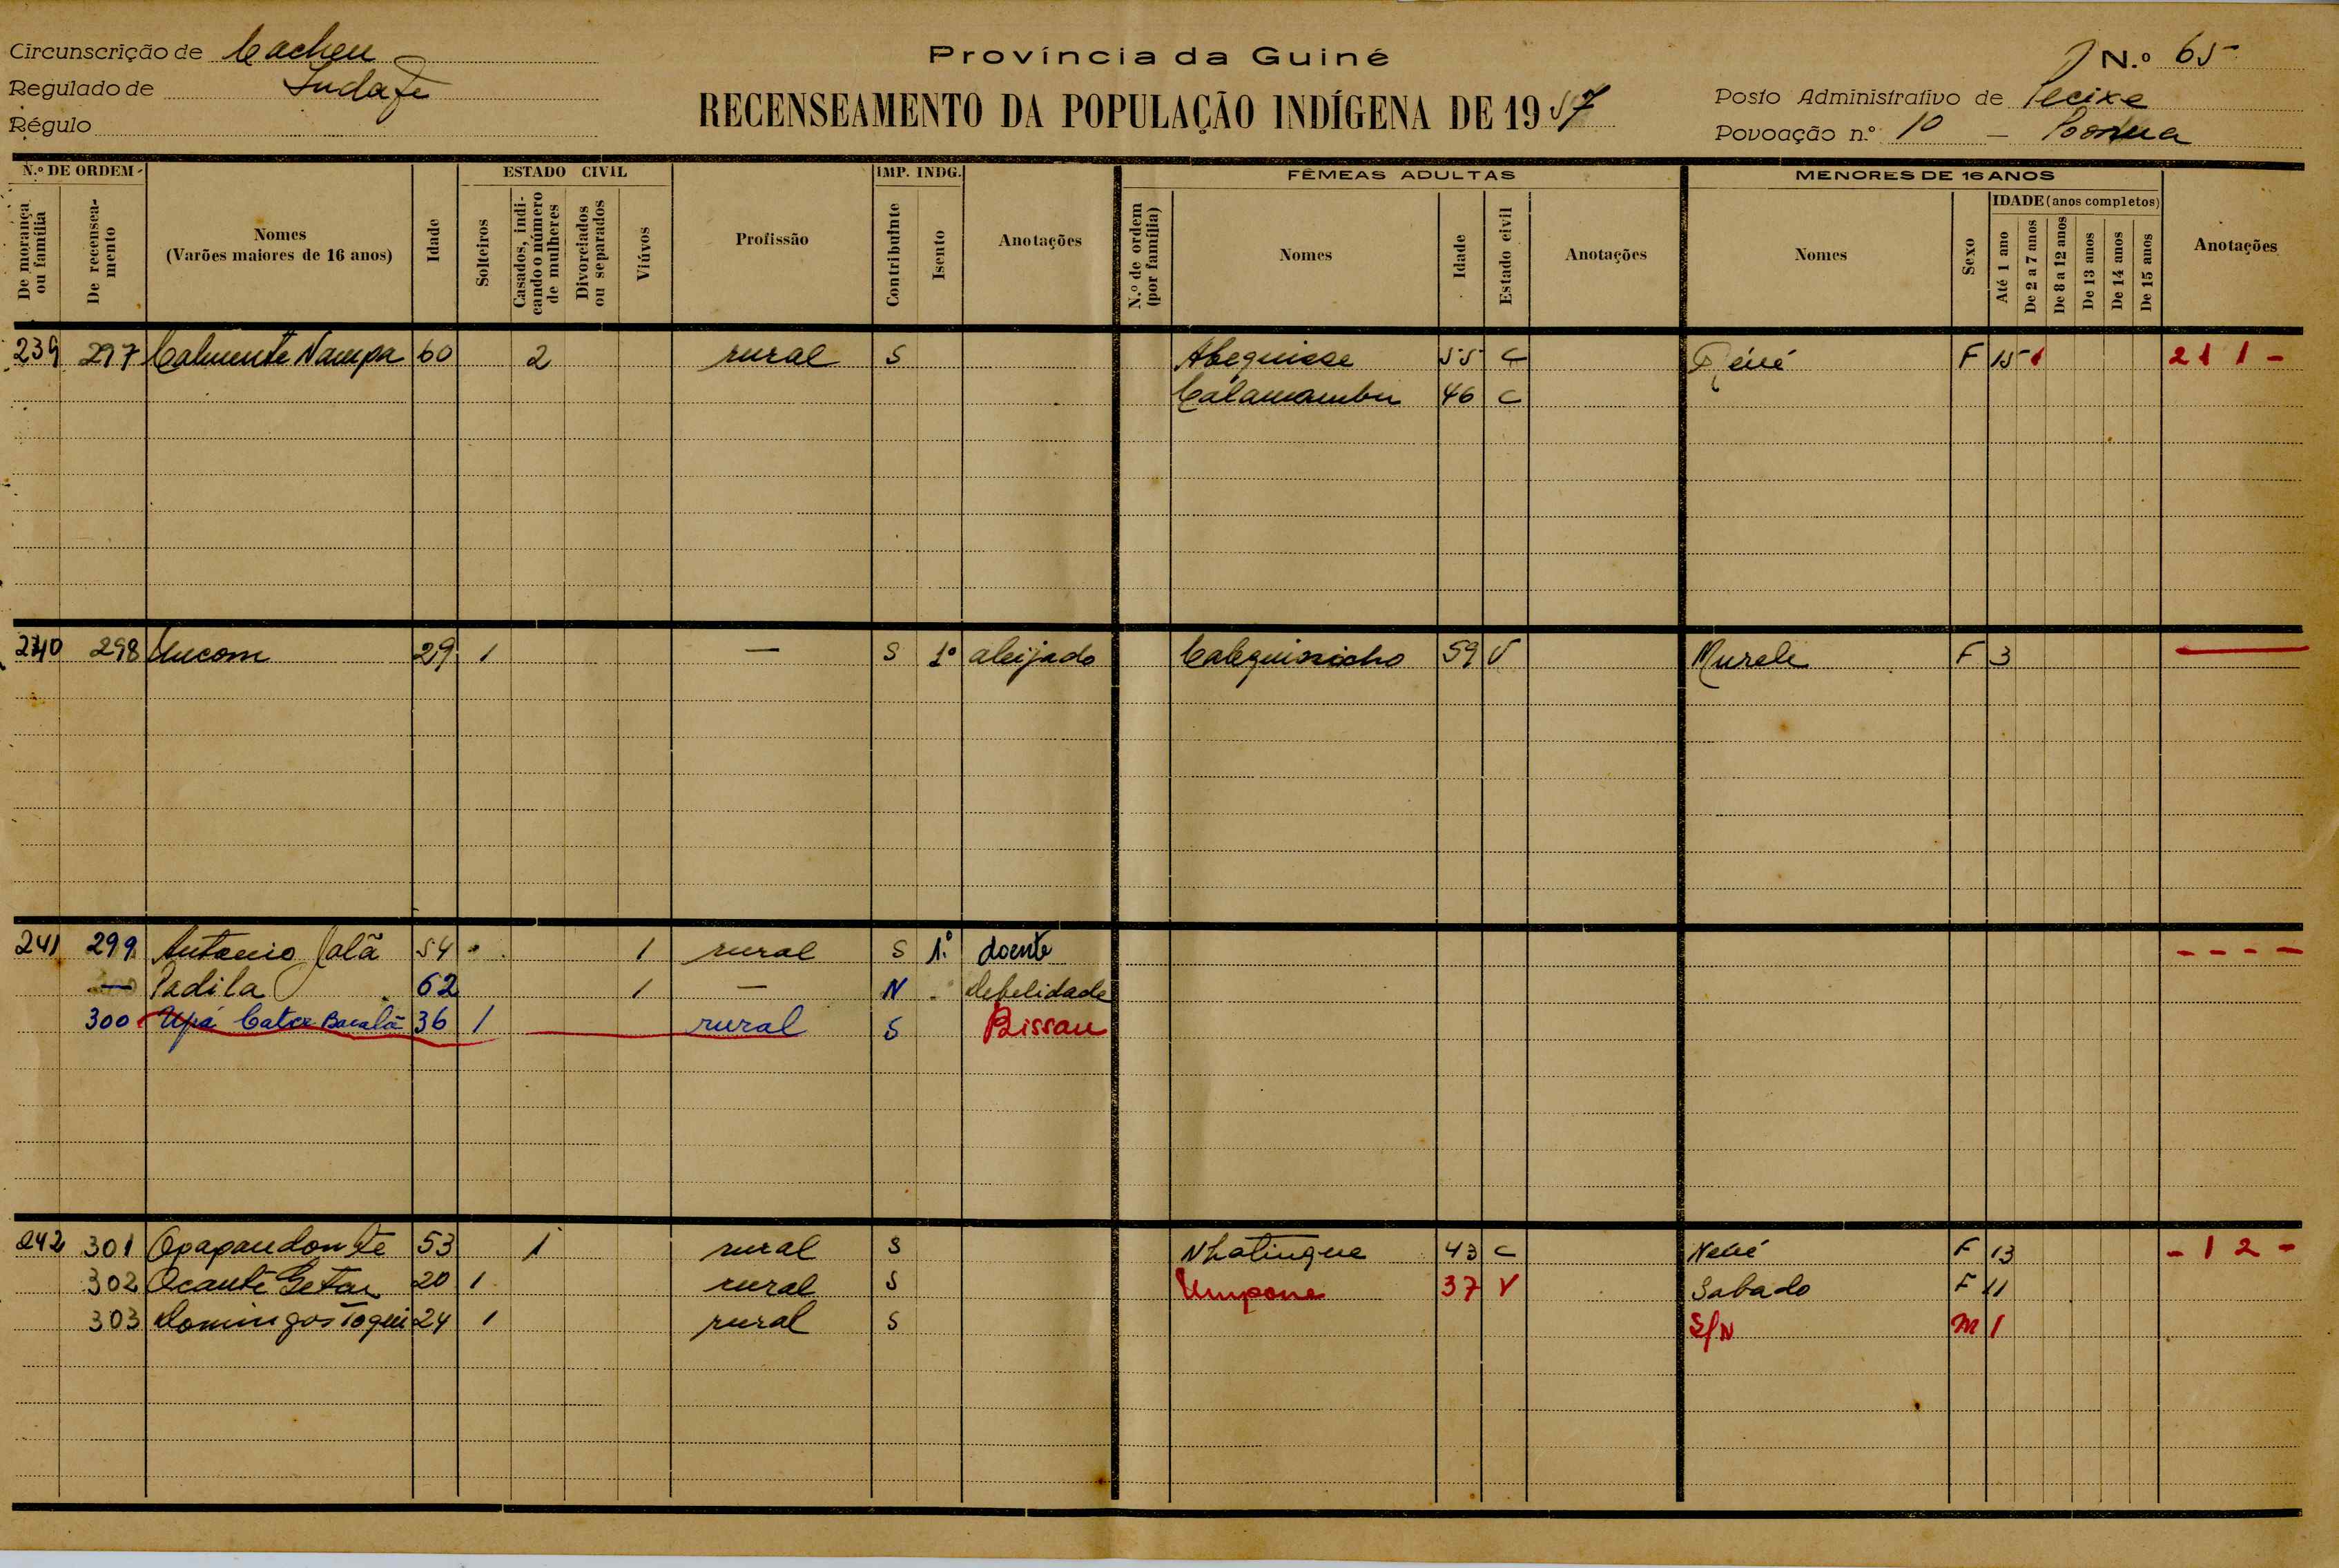 Circunscrição de Cacheu
Regulado de
Régulo
Província da Guiné
RECENSEAMENTO DA POPULAÇÃO INDÍGENA DE 1957
N.º 65
Posto Administrativo de Pecixe
Povoação n.º 10 –
N.º DE ORDEM
De morança ou família
De recenseamento
Nomes
(Varões maiores de 16 anos)
Idade
ESTADO CIVIL
Solteiros
Casados, indicando o número de mulheres
Divorciados ou separados
Viúvos
Profissão
IMP. INDG.
Contribuinte
Isento
Anotações
FÊMEAS ADULTAS
N.º de ordem (por família)
Nomes
Idade
Estado civil
Anotações
MENORES DE 16 ANOS
Nomes
Sexo
IDADE (anos completos)
Até 1 ano
De 2 a 7 anos
De 8 a 12 anos
De 13 anos
De 14 anos
De 15 anos
Anotações
239 297 Calmente Nampa 60 2 rural S Abequisse 55 C F 15 1 2 1 1 -
Calamambu 46 C
240 298 Uncom 29 1 — S 1º aleijado 59 V Murele F 3 —
241 299 Antonio Jalã 54 1 rural S 1.º doente - - - -
— Padila 62 1 — N debelidade
300 Upá Catce Bacalã 36 1 rural S Bissau
242 301 Opapandonte 53 1 rural S Nhatingue 43 C Nené F 13 - 1 2 -
302 Ocante Getan 20 1 rural S Umpone 37 V Sabado F 11
303 Domingos Toqui 24 1 rural S S/N M 1